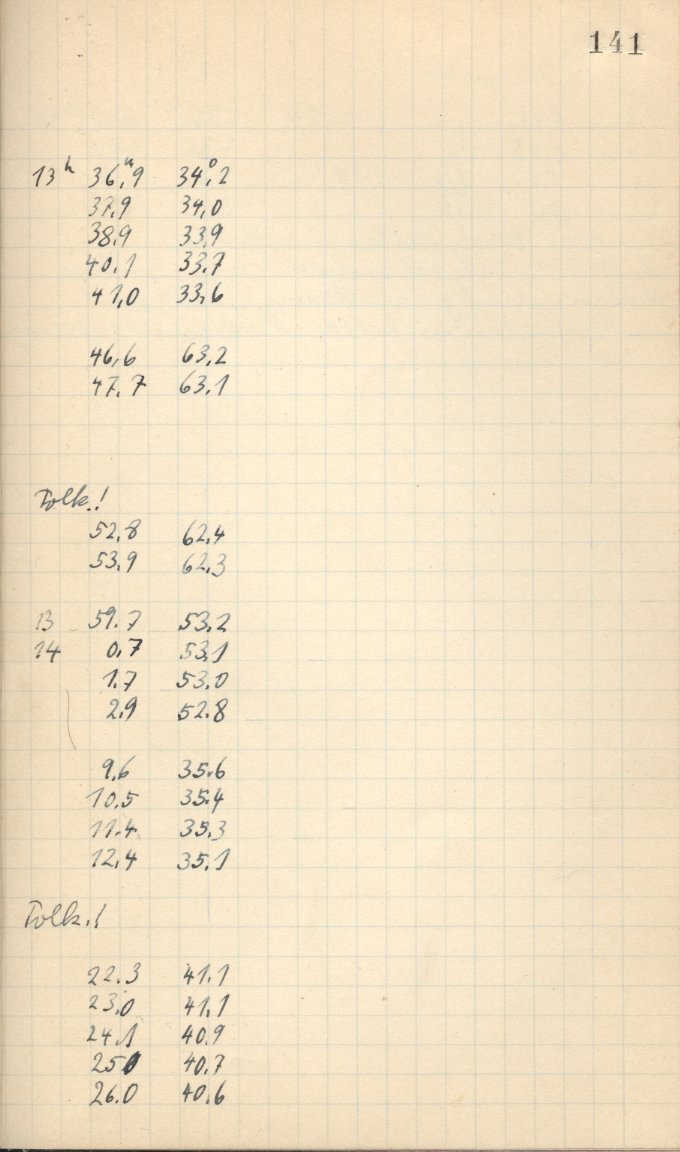 141
13ʰ 36,ᵐ9 34,⁰2
37,9 34,0
38,9 33,9
40,1 33,7
41,0 33,6
46,6 63,2
47,7 63,1
Polk.!
52,8 62,4
53,9 62,3
13 59,7 53,2
14 0,7 53,1
1,7 53,0
2,9 52,8
9,6 35,6
10,5 35,4
11,4 35,3
12,4 35,1
Polk.!
22,3 41,1
23,0 41,1
24,1 40,9
25,0 40,7
26,0 40,6